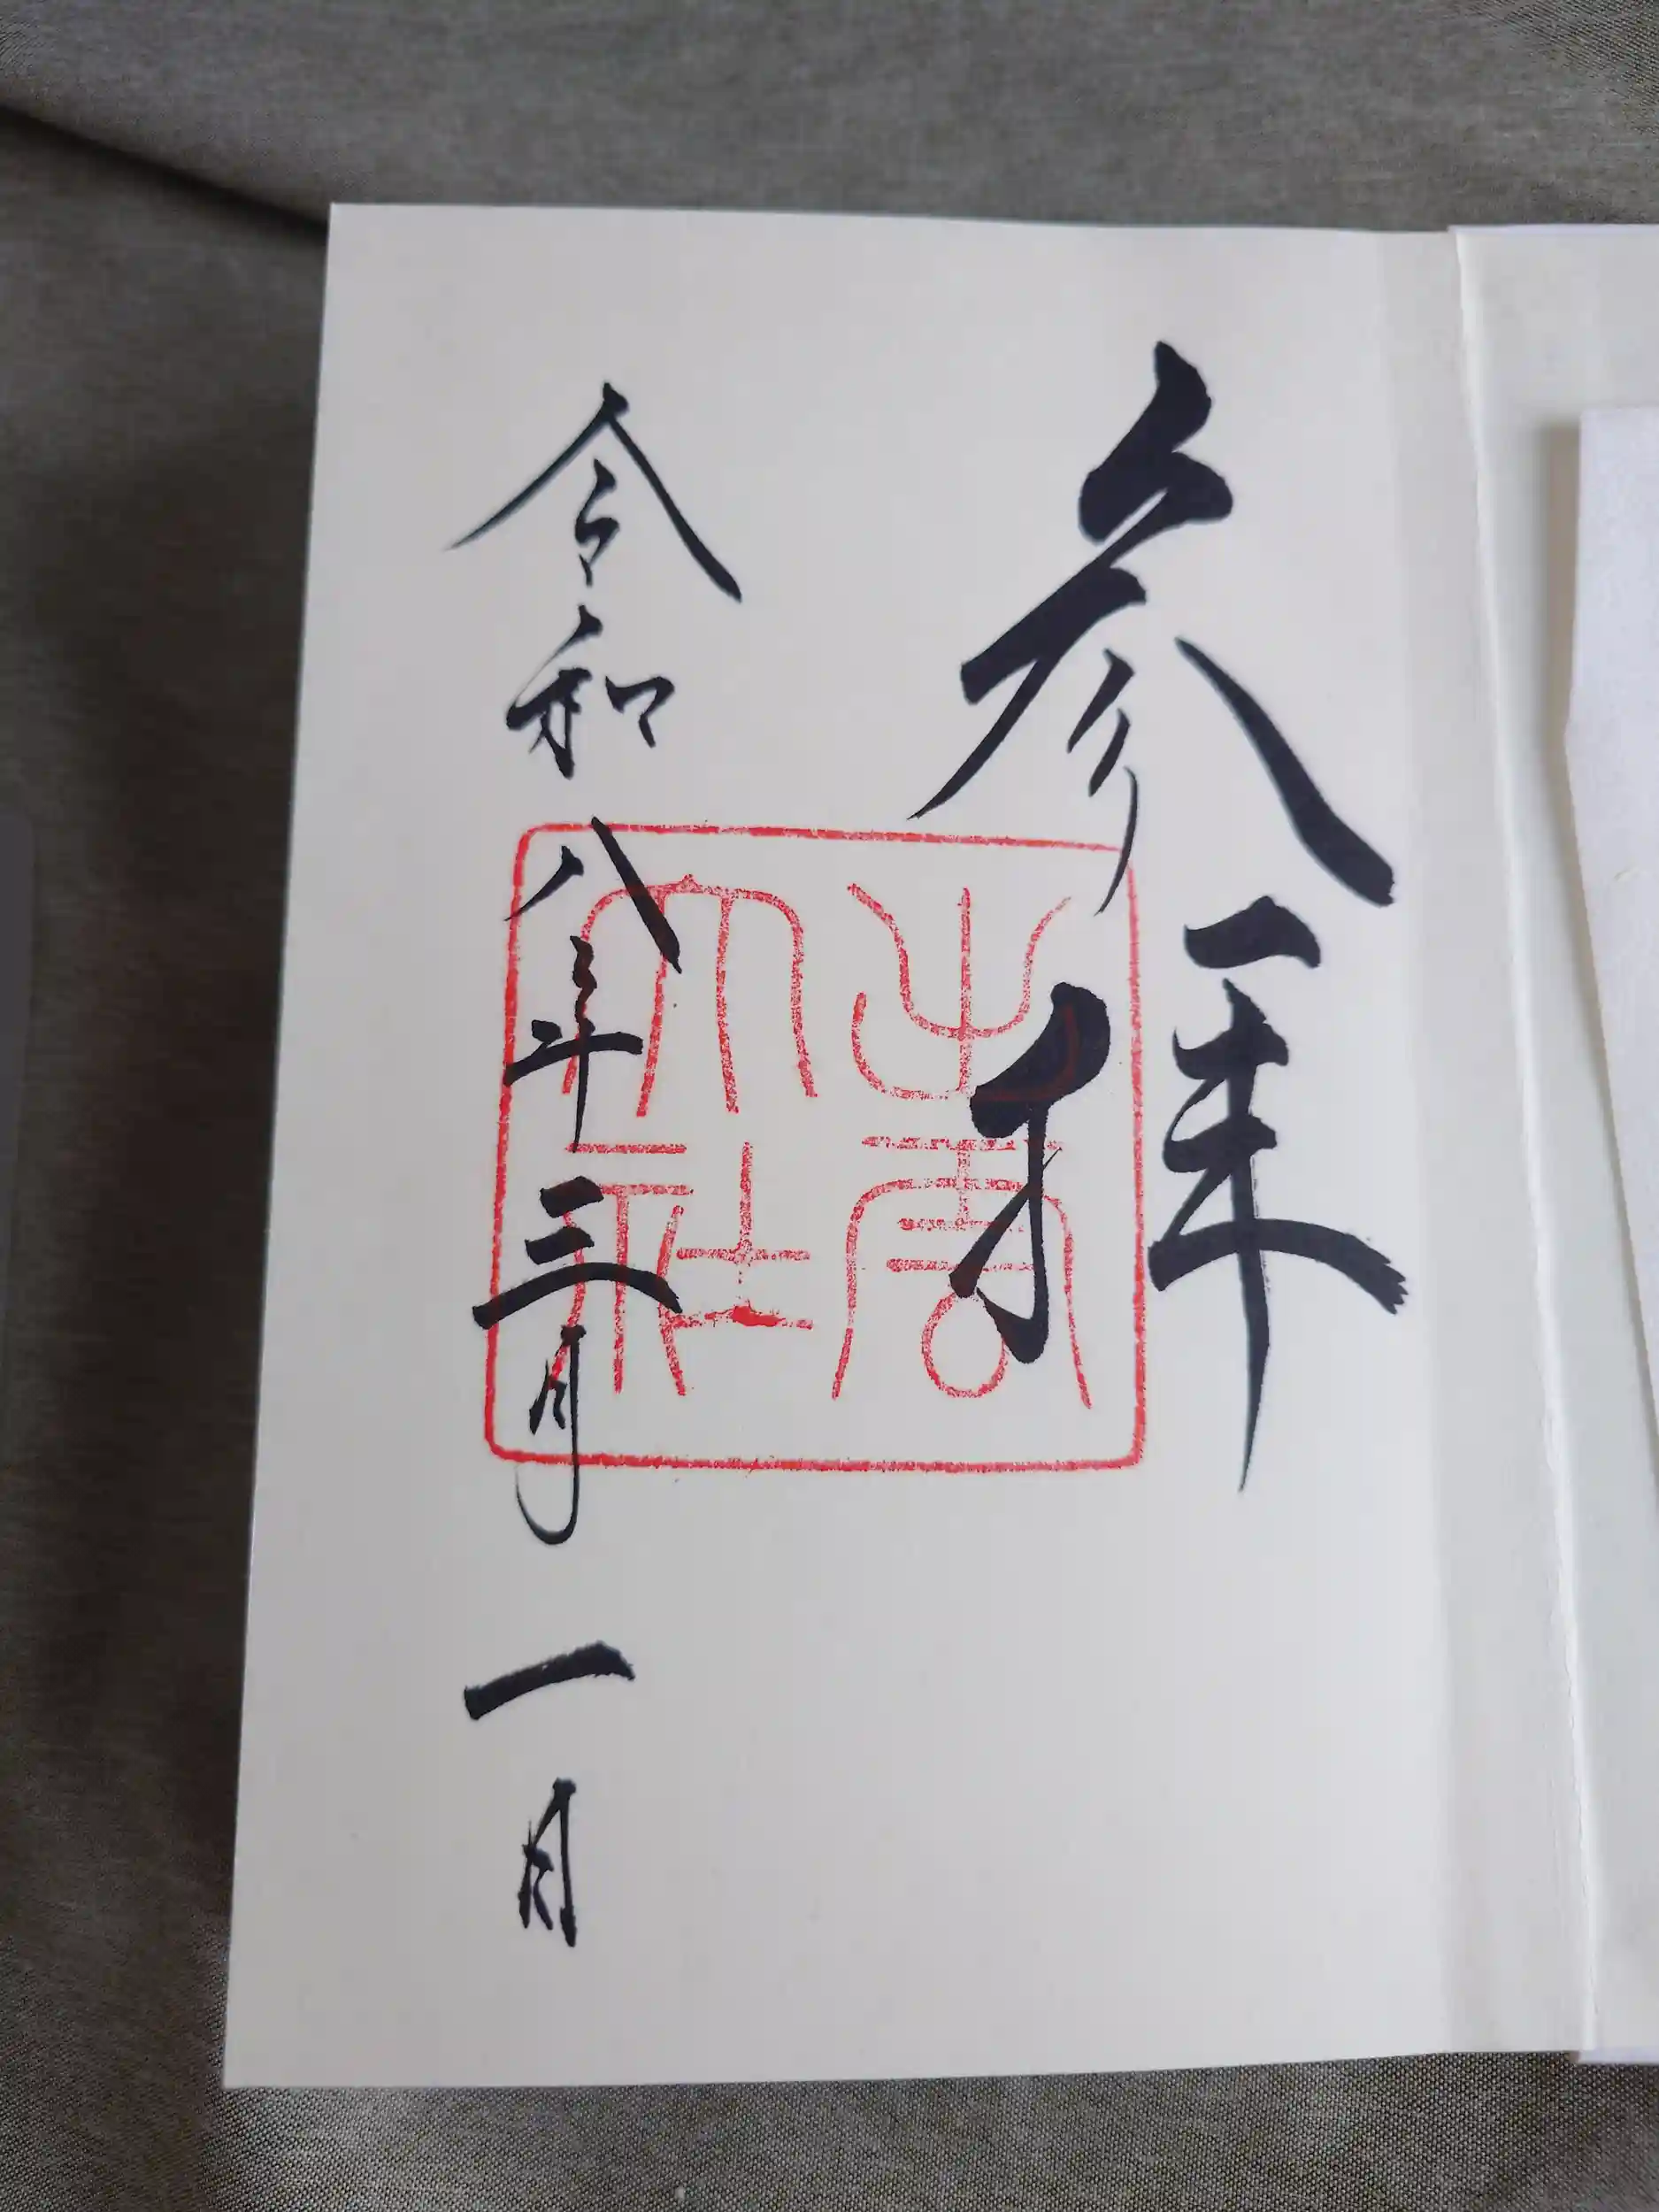 参拝
出雲
大社
令和八年三月一日